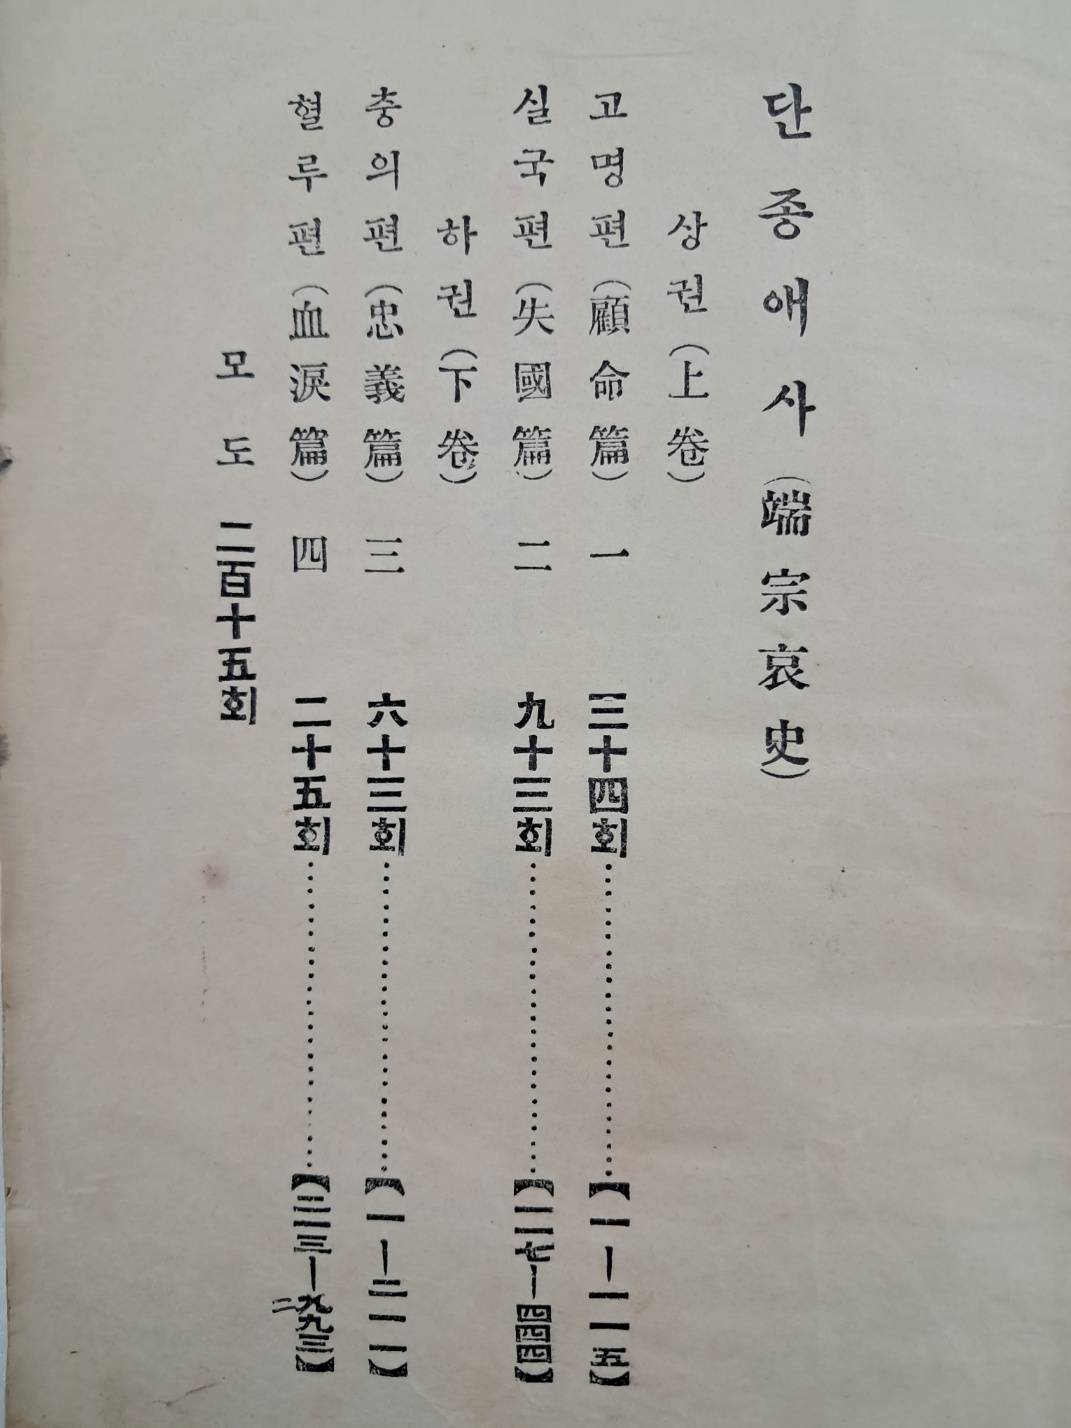 단종애사(端宗哀史)
상권(上卷)
고명편(顧命篇) 一 三十四회……………………【一—一一五】
실국편(失國篇) 二 九十三회……………………【一一七—四四四】
하권(下卷)
충의편(忠義篇) 三 六十三회……………………【一—二一一】
혈루편(血淚篇) 四 二十五회……………………【二一三—九九三】
二
모도 二百十五회